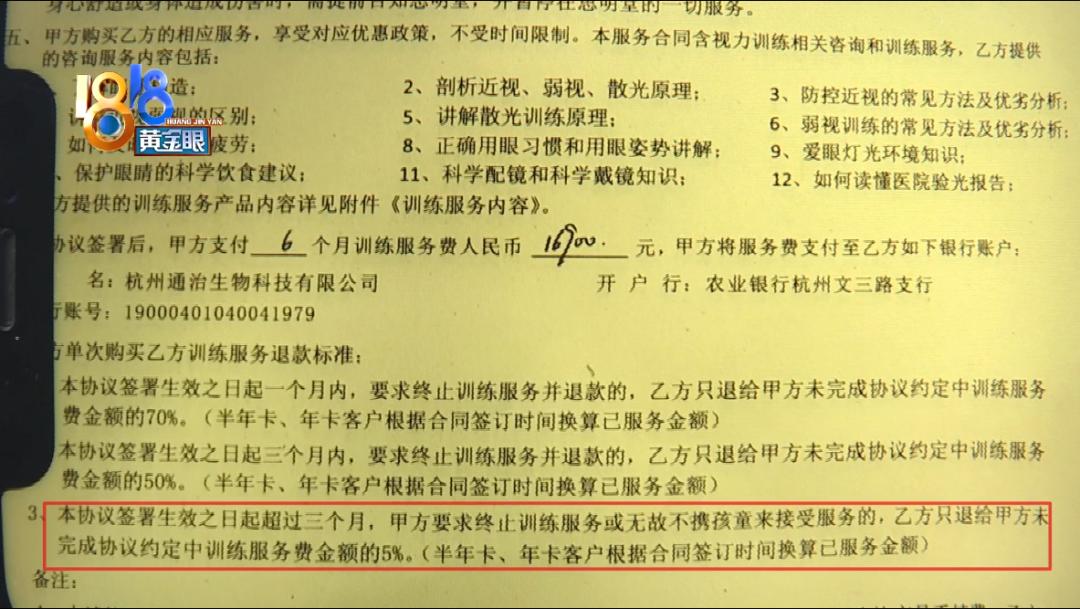 身心舒适或身体造成伤害时，需提前告知思明堂，并暂停在思明堂的一切服务。
五、甲方购买乙方的相应服务，享受对应优惠政策，不受时间限制。本服务合同含视力训练相关咨询和训练服务，乙方提供
的咨询服务内容包括：
造； 2、剖析近视、弱视、散光原理； 3、防控近视的常见方法及优劣分析；
的区别； 5、讲解散光训练原理； 6、弱视训练的常见方法及优劣分析；
如何 疲劳； 8、正确用眼习惯和用眼姿势讲解； 9、爱眼灯光环境知识；
、保护眼睛的科学饮食建议； 11、科学配镜和科学戴镜知识； 12、如何读懂医院验光报告；
方提供的训练服务产品内容详见附件《训练服务内容》。
协议签署后，甲方支付 6 个月训练服务费人民币 16900. 元，甲方将服务费支付至乙方如下银行账户：
名：杭州通治生物科技有限公司 开 户 行：农业银行杭州文三路支行
行账号：19000401040041979
方单次购买乙方训练服务退款标准：
本协议签署生效之日起一个月内，要求终止训练服务并退款的，乙方只退给甲方未完成协议约定中训练服务
费金额的70%。（半年卡、年卡客户根据合同签订时间换算已服务金额）
本协议签署生效之日起三个月内，要求终止训练服务并退款的，乙方只退给甲方未完成协议约定中训练服务
费金额的50%。（半年卡、年卡客户根据合同签订时间换算已服务金额）
3、本协议签署生效之日起超过三个月，甲方要求终止训练服务或无故不携孩童来接受服务的，乙方只退给甲方未
完成协议约定中训练服务费金额的5%。（半年卡、年卡客户根据合同签订时间换算已服务金额）
备注：
1818
HUANG JIN YAN
黄金眼